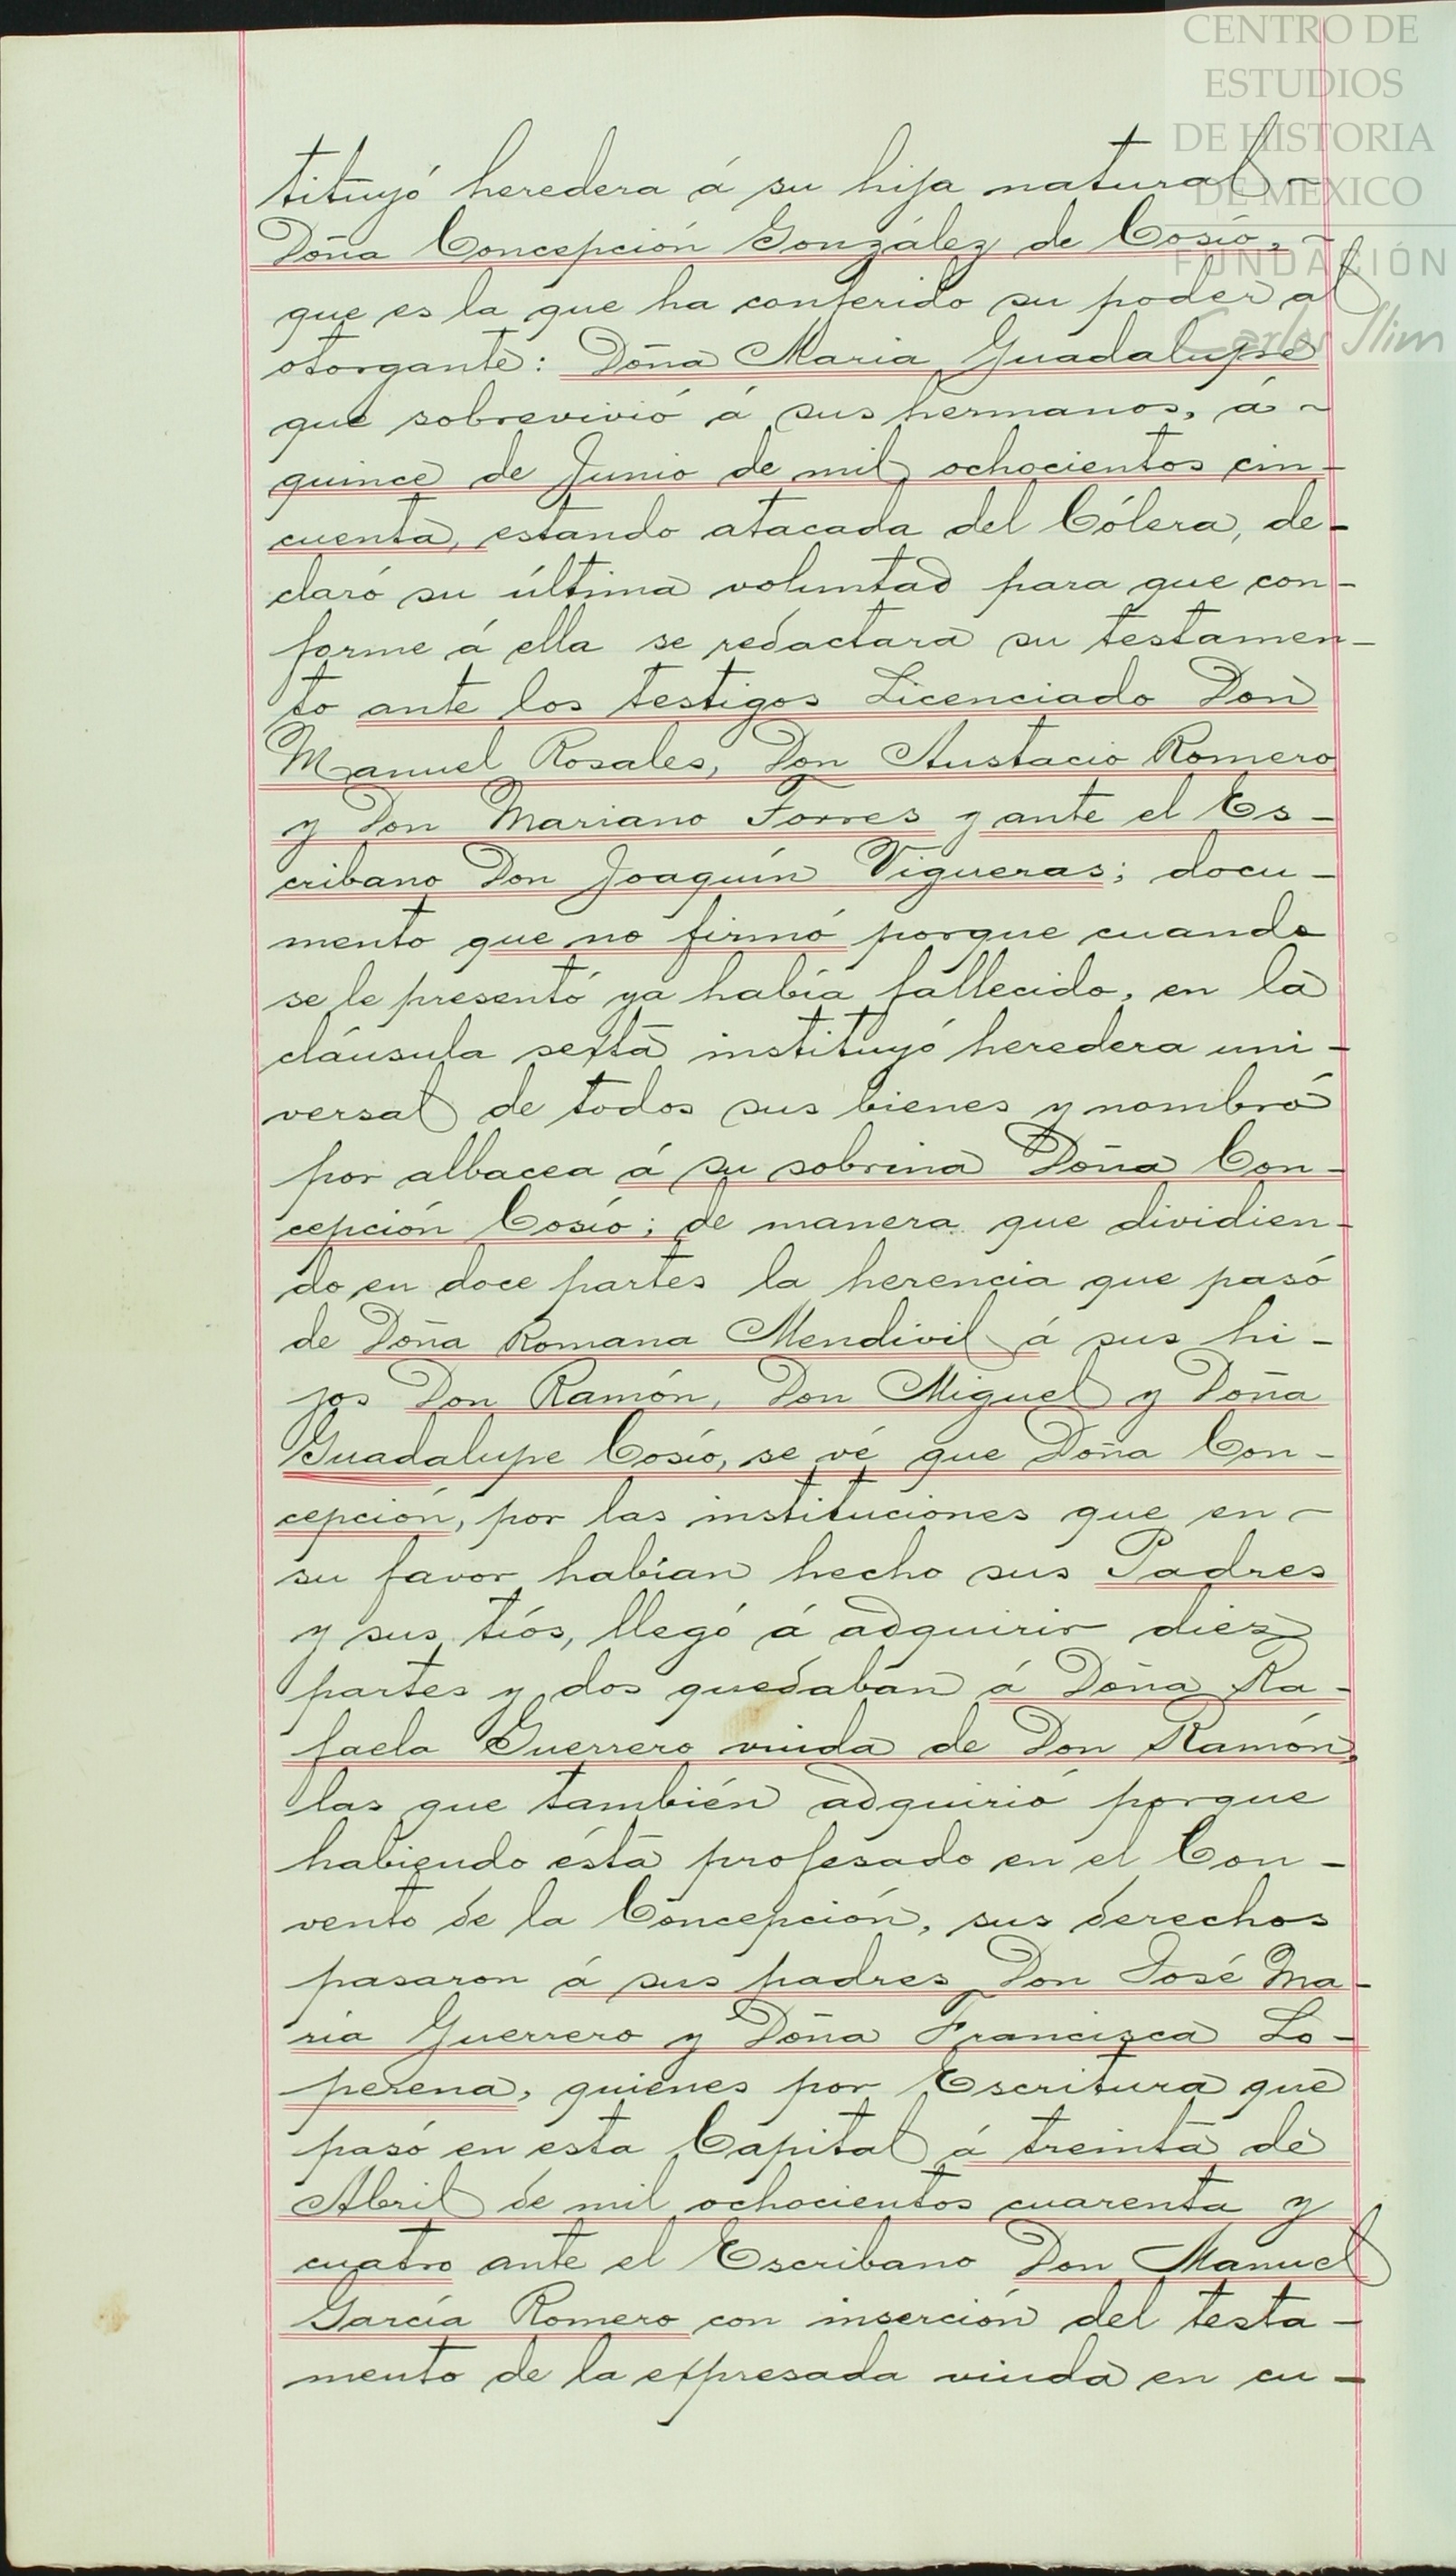 CENTRO DE
ESTUDIOS
DE HISTORIA
DE MÉXICO
FUNDACIÓN
Carlos Slim
tituyó heredera á su hija natural ~
Doña Concepción González de Cosío, ~
que es la que ha conferido su poder al
otorgante: Doña Maria Guadalupe
que sobrevivió á sus hermanos, á ~
quince de Junio de mil ochocientos cin-
cuenta, estando atacada del Cólera, de-
claró su última voluntad para que con-
forme á ella se redactara su testamen-
to ante los testigos Licenciado Don
Manuel Rosales, Don Austacio Romero
y Don Mariano Torres y ante el Es-
cribano Don Joaquín Vigueras; docu-
mento que no firmó porque cuando
se le presentó ya había fallecido, en la
cláusula sexta instituyó heredera uni-
versal de todos sus bienes y nombró
por albacea á su sobrina Doña Con-
cepción Cosío; de manera que dividien-
do en doce partes la herencia que pasó
de Doña Romana Mendivil á sus hi-
jos Don Ramón, Don Miguel y Doña
Guadalupe Cosío, se vé que Doña Con-
cepción, por las instituciones que en ~
su favor habían hecho sus Padres
y sus tíos, llegó á adquirir diez
partes y dos quedaban á Doña Ra-
faela Guerrero viuda de Don Ramón,
las que también adquirió porque
habiendo ésta profesado en el Con-
vento de la Concepción, sus derechos
pasaron á sus padres Don José Ma-
ria Guerrero y Doña Francisca Lo-
perena, quienes por Escritura que
pasó en esta Capital á treinta de
Abril de mil ochocientos cuarenta y
cuatro ante el Escribano Don Manuel
García Romero con inserción del testa-
mento de la expresada viuda en cu-